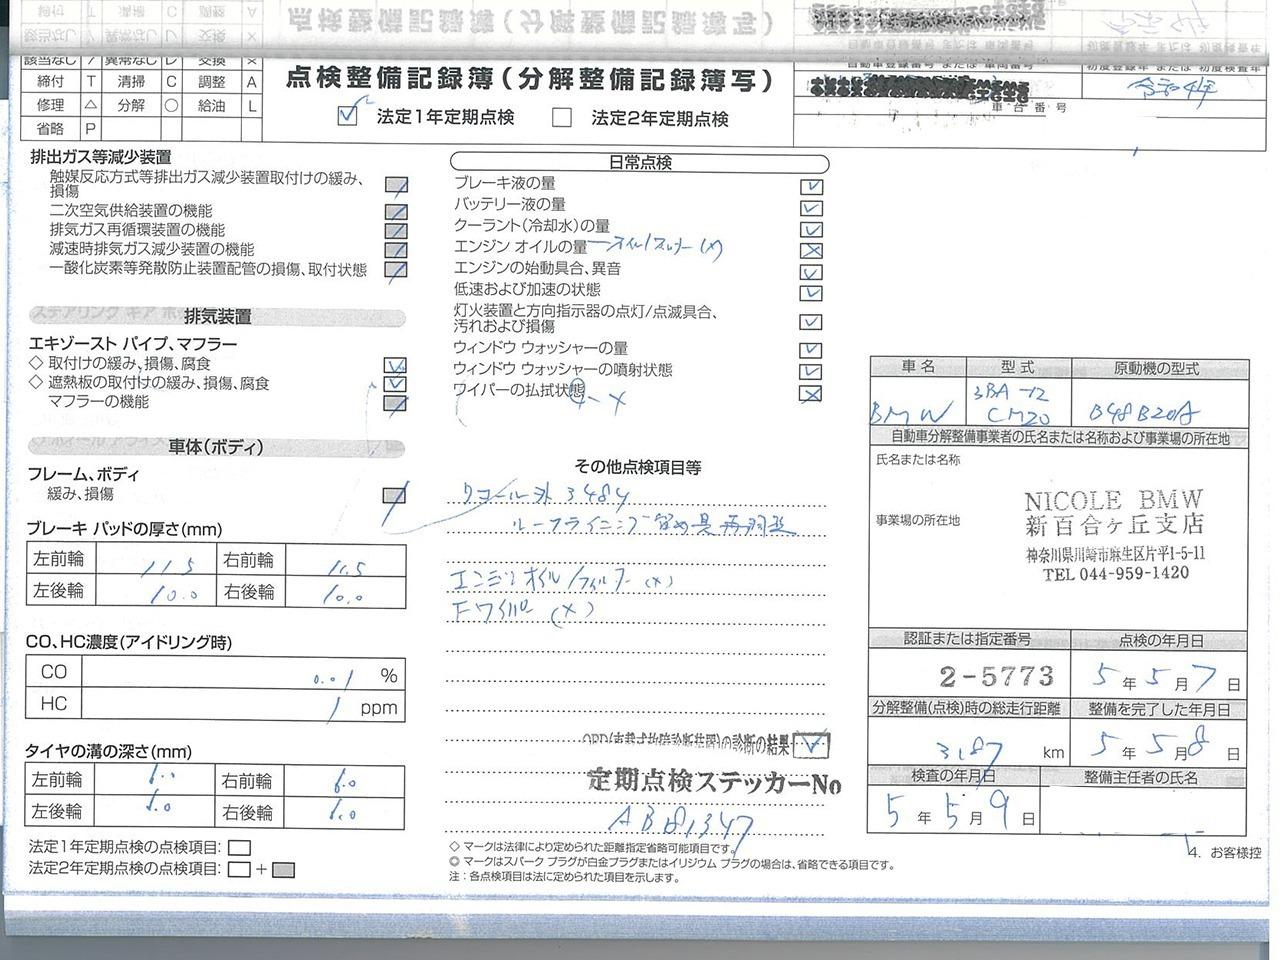 該当なし / 異常なし レ 交換 ×
締付 T 清掃 C 調整 A
修理 △ 分解 ○ 給油 L
省略 P
点検整備記録簿(分解整備記録簿写)
法定1年定期点検 法定2年定期点検
自動車登録番号 または 車両番号
初度登録年 または 初度検査年
令和4年
車台番号
排出ガス等減少装置
触媒反応方式等排出ガス減少装置取付けの緩み、
損傷
二次空気供給装置の機能
排気ガス再循環装置の機能
減速時排気ガス減少装置の機能
一酸化炭素等発散防止装置配管の損傷、取付状態
排気装置
エキゾースト パイプ、マフラー
◇ 取付けの緩み、損傷、腐食
◇ 遮熱板の取付けの緩み、損傷、腐食
マフラーの機能
車体(ボディ)
フレーム、ボディ
緩み、損傷
ブレーキ パッドの厚さ(mm)
左前輪 11.5 右前輪 11.5
左後輪 10.0 右後輪 10.0
CO、HC濃度(アイドリング時)
CO 0.01 %
HC 1 ppm
タイヤの溝の深さ(mm)
左前輪 右前輪 6.0
左後輪 6.0 右後輪 6.0
法定1年定期点検の点検項目:
法定2年定期点検の点検項目: +
日常点検
ブレーキ液の量
バッテリー液の量
クーラント(冷却水)の量
エンジン オイルの量
エンジンの始動具合、異音
低速および加速の状態
灯火装置と方向指示器の点灯/点滅具合、
汚れおよび損傷
ウィンドウ ウォッシャーの量
ウィンドウ ウォッシャーの噴射状態
ワイパーの払拭状態
その他点検項目等
リコール外 3484
ルーフライニング 留め具 再調整
エンジンオイル/フィルター (×)
Fワイパー (×)
OBD(車載式故障診断装置)の診断の結果
定期点検ステッカーNo
AB81347
◇ マークは法律により定められた距離指定省略可能項目です。
◎ マークはスパーク プラグが白金プラグまたはイリジウム プラグの場合は、省略できる項目です。
注:各点検項目は法に定められた項目を示します。
車名 型式 原動機の型式
BMW 3BA-12CM20 B48B20A
自動車分解整備事業者の氏名または名称および事業場の所在地
氏名または名称
事業場の所在地
NICOLE BMW
新百合ヶ丘支店
神奈川県川崎市麻生区片平1-5-11
TEL 044-959-1420
認証または指定番号 点検の年月日
2-5773 5年5月7日
分解整備(点検)時の総走行距離 整備を完了した年月日
3,187 km 5年5月8日
検査の年月日 整備主任者の氏名
5年5月9日
4. お客様控